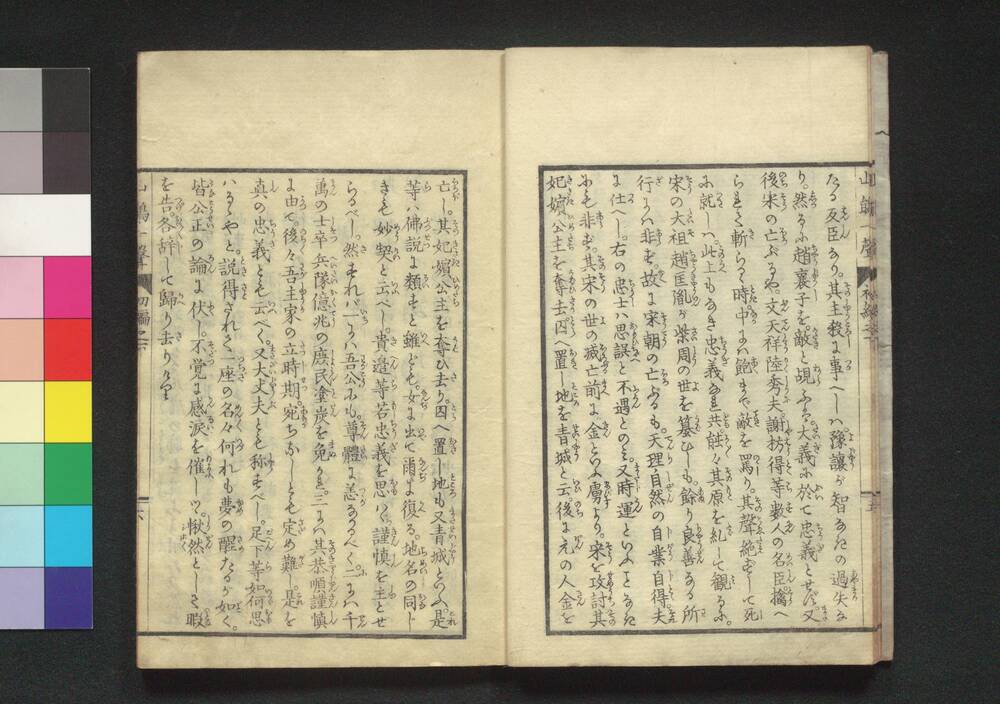 たる反臣あり。其主殺に事へしハ豫讓が智なきの過失なり。然るに趙襄子を。敵と覘ふる大義に於て忠義とせば。又
後宋の亡ぶるや。文天祥陸秀夫謝枋得等数人の名臣擒へ
られて斬らるゝ時。中にハ飽まで敵を罵り。其聲絶ずして死
に就しハ。此上もなき忠義なれ共。能々其原を糺して観るに。
宋の大祖趙匡胤が柴周の世を簒ひしも。餘り良善なる所
行にハ非ず。故に宋朝の亡ぶるも。天理自然の自業自得。夫
に仕へし。右の忠士ハ思誤と不遇とのミ。又時運といふことなき
にも非ず。其宋の世の滅亡前に金といふ虜より。宋を攻討其
妃嬪公主を奪去囚へ置し地を青城と云。後に元の人金を
亡し。其妃嬪公主を奪ひ去り。囚へ置し地も又青城といへり。是
等ハ佛説に類すと雖ども。女に出て雨に復る。地名の同じ
きも妙契と云べし。貴邉等若忠義を思ハゞ。謹慎を主とせ
らるべし。然すれバ一にハ吾公にも。尊體に恙なかるべく。二にハ千
萬の士卒。兵隊億兆の庶民塗炭を免かれ。三にハ其恭順謹慎
に由て。後々吾主家の立時期。宛ちなしとも定め難し。是を
真の忠義とも云べく。又大丈夫とも称すべし。足下等如何思
ハるゝやと。説得されて一座の名々何れも夢の醒たるが如く。
皆公正の論に伏し。不覚に感涙を催しつ。愀然として暇
を告。各辞して歸り去りけり